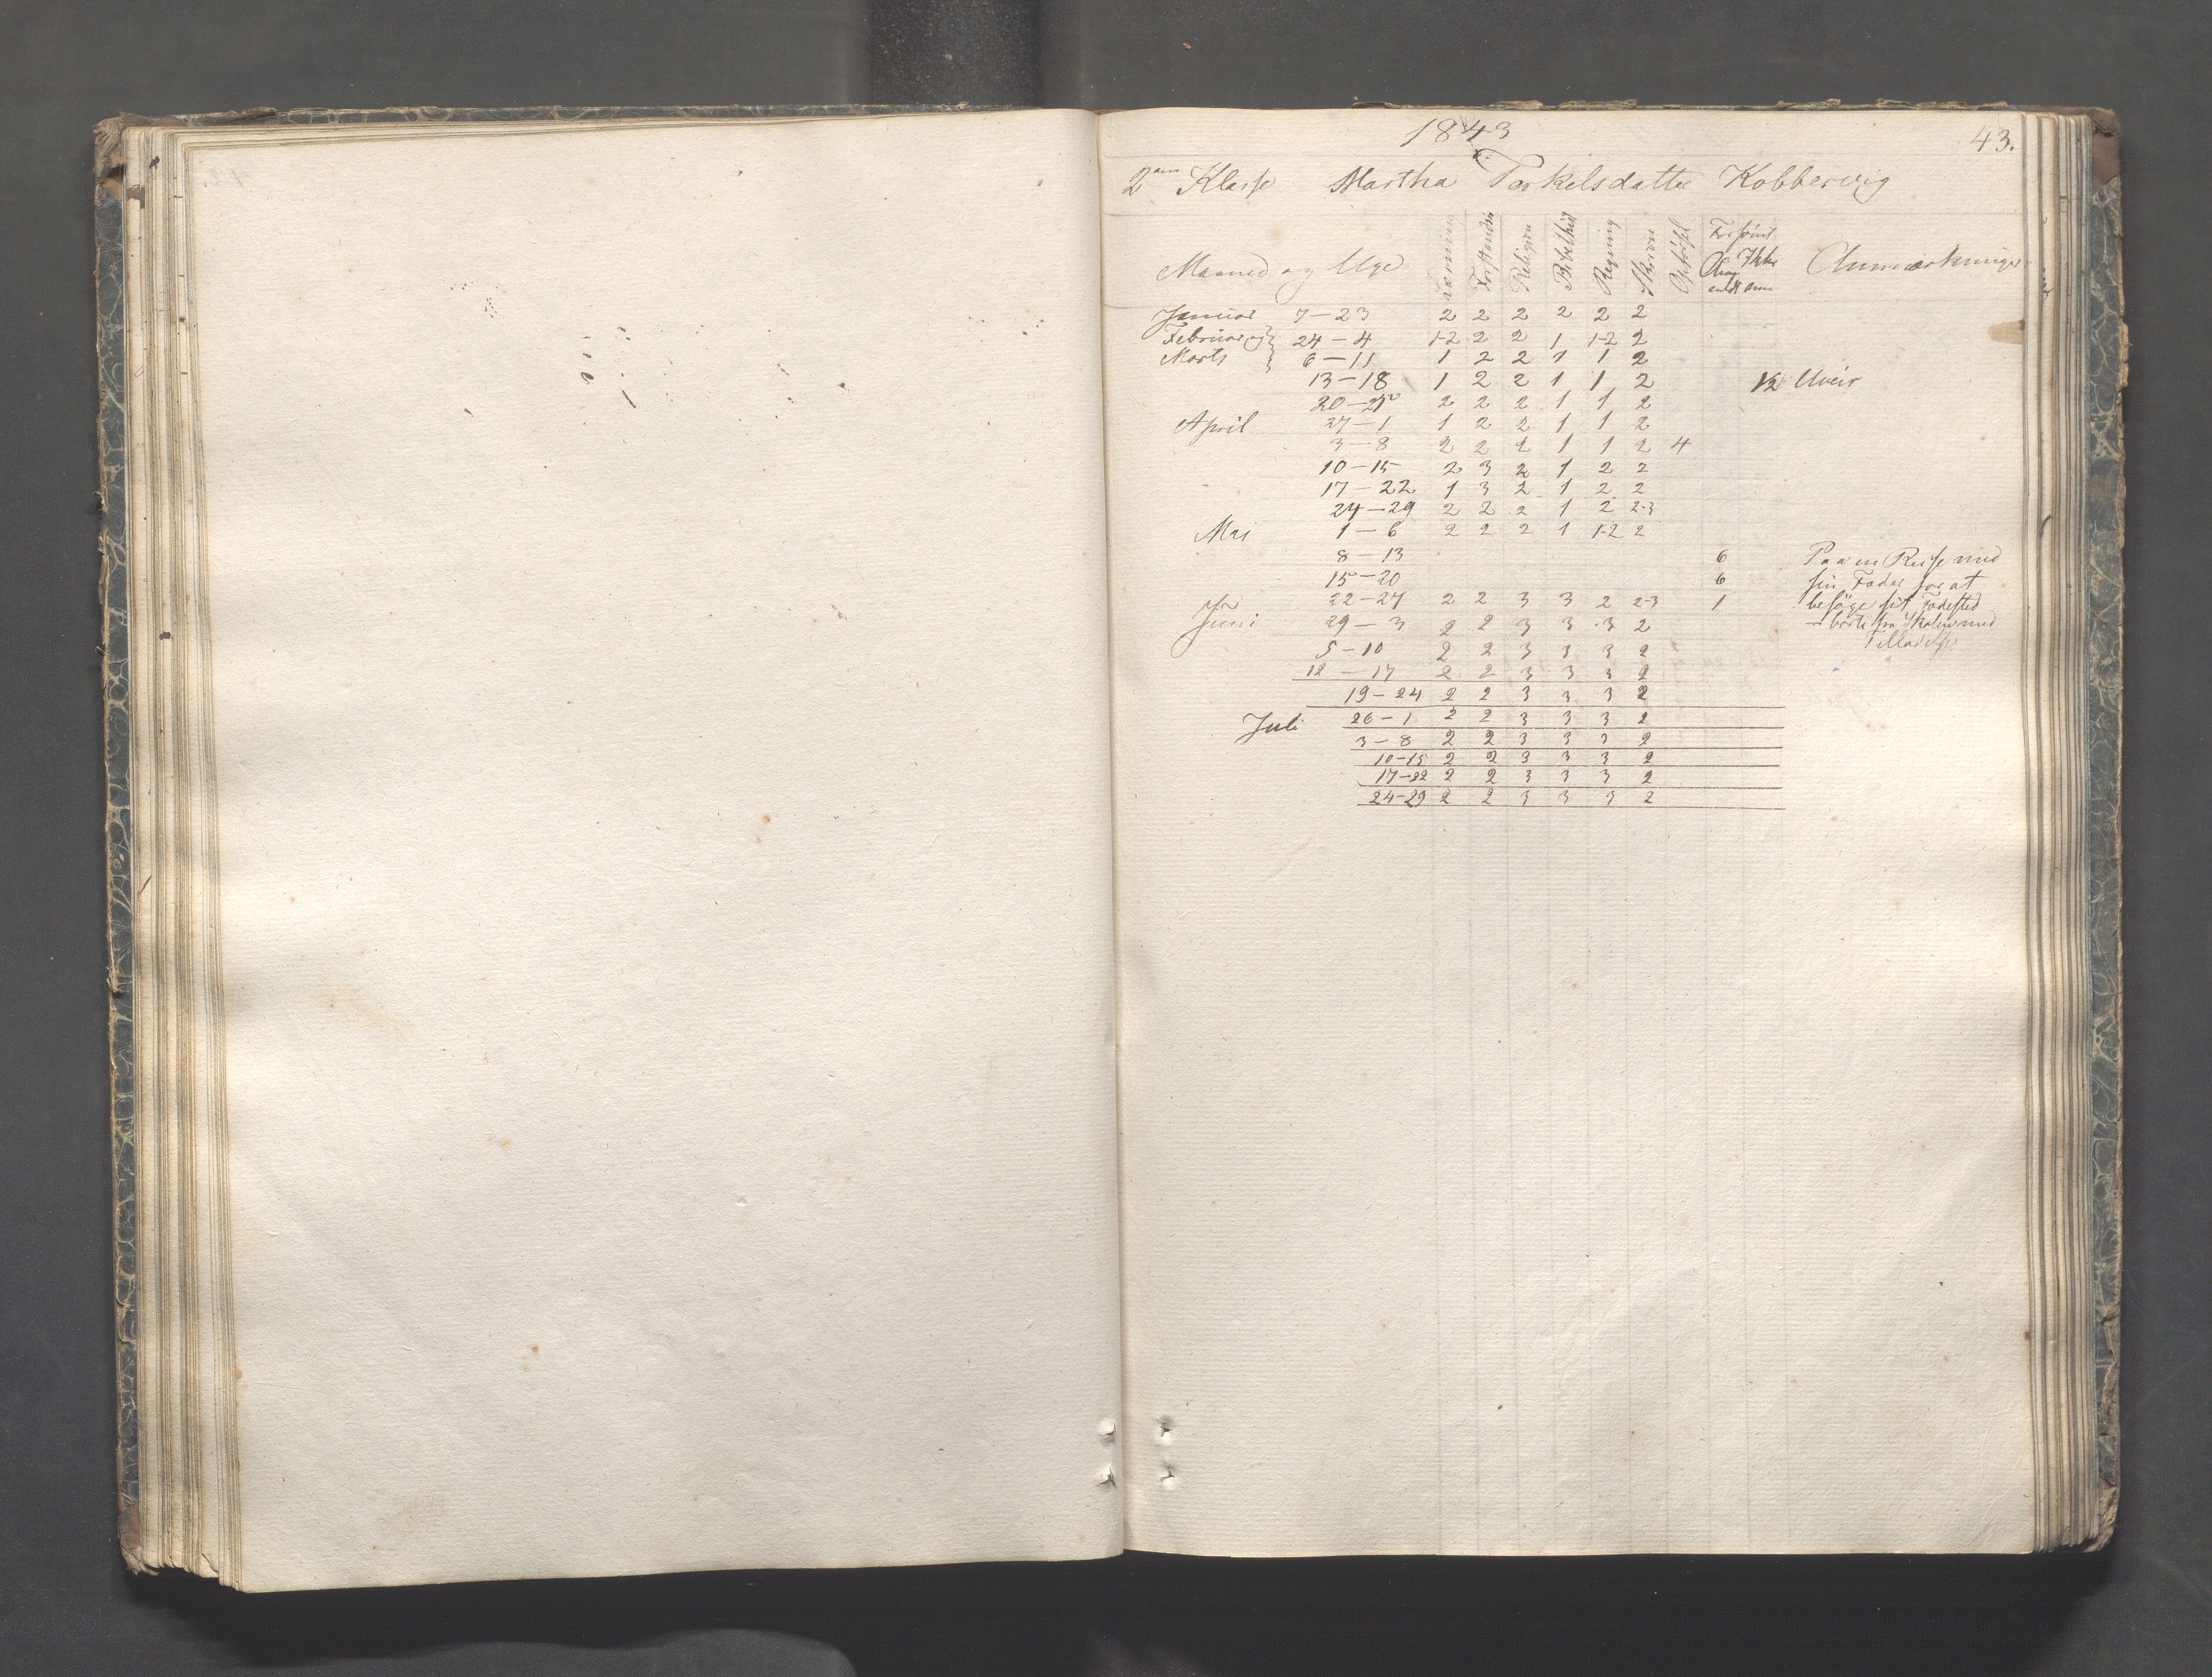 1843
43.
2den Klasse Martha Torkelsdatter Kobbervig
Maaned og Uge Læsning Forstanden Religion Bibelhist Regning Skriven Opførsel Forsømt Anmærkninger
Januar 7 – 23 2 2 2 2 2 2
Februar og 24 – 4 1-2 2 2 1 1-2 2
Marts 6 – 11 1 2 2 1 1 2
13 – 18 1 2 2 1 1 2 1/2 Uveir
20 – 25 2 2 2 1 1 2
April 27 – 1 1 2 2 1 1 2
3 – 8 2 2 2 1 1 2 4
10 – 15 2 3 2 1 2 2
17 – 22 1 3 2 1 2 2
24 – 29 2 2 2 1 2 2-3
Mai 1 – 6 2 2 2 1 1-2 2
8 – 13 6 Paa en Reise med
15 – 20 6 sin Fader for at
22 – 27 2 2 3 3 2 2-3 1 besöge sit Födested
Juni 29 – 3 2 2 3 3 3 2 – borte fra Skolen med
5 – 10 2 2 3 3 3 2 Tilladelse
12 – 17 2 2 3 3 3 2
19 – 24 2 2 3 3 3 2
Juli 26 – 1 2 2 3 3 3 2
3 – 8 2 2 3 3 3 2
10 – 15 2 2 3 3 3 2
17 – 22 2 2 3 3 3 2
24 – 29 2 2 3 3 3 2